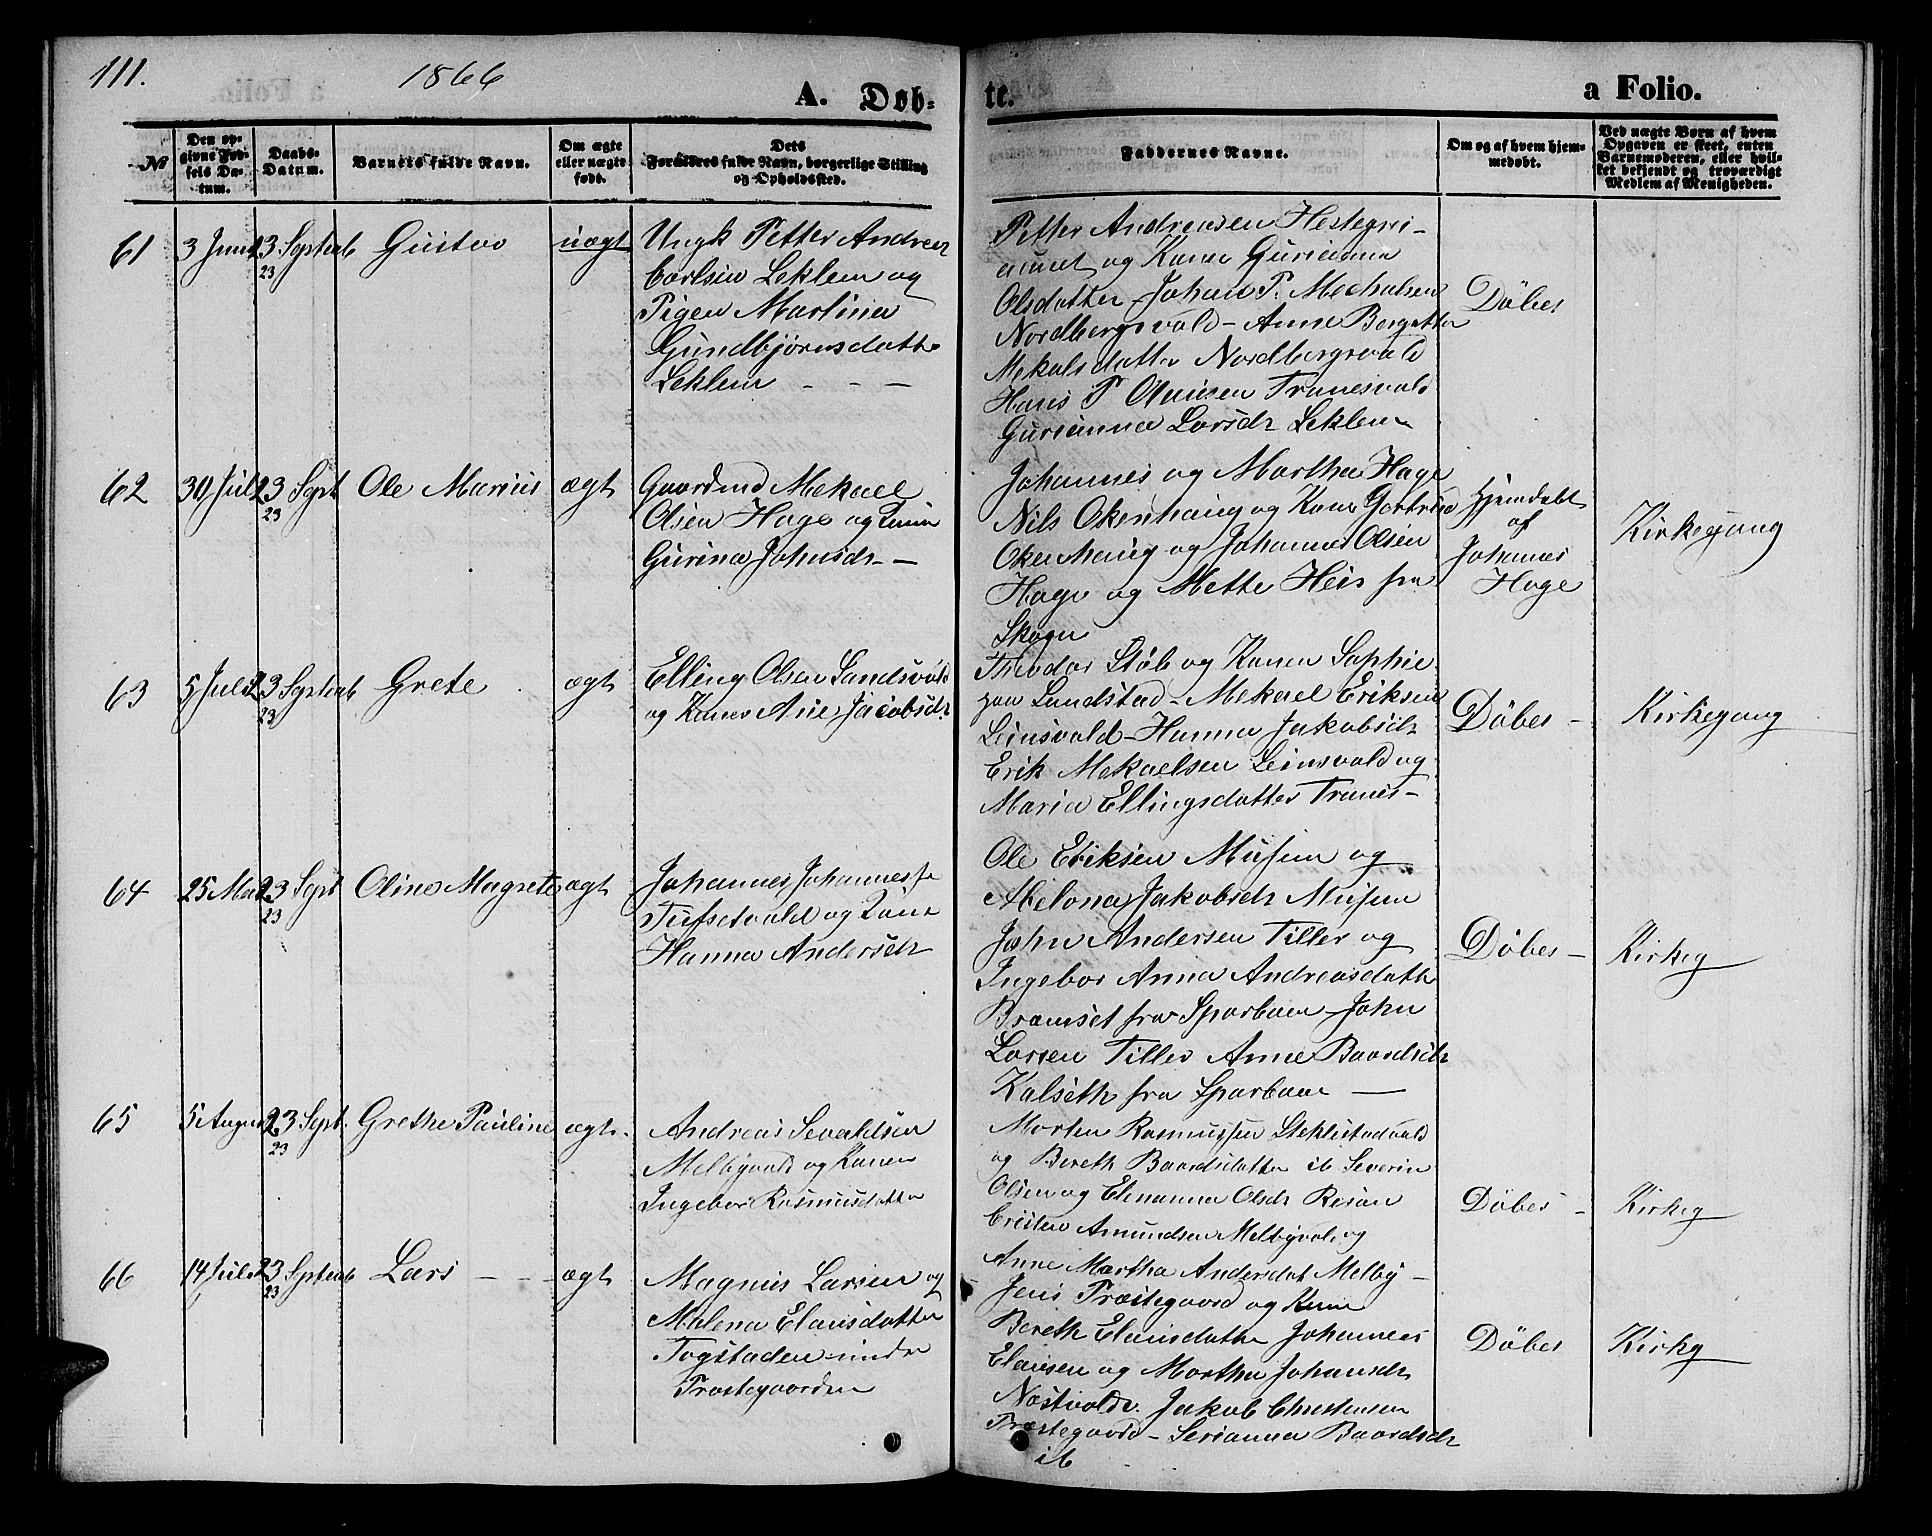 111.
1866
A. Døb-
te.
a Folio.
№
Den op-
givne Fød-
sels Da-
tum.
Daabs-
Datum.
Barnets fulde Navn.
Om ægte
eller uægte
født.
Dets
Forældres fulde Navn, borgerlige Stilling
og Opholdssted.
Faddernes Navne.
Om og af hvem hjem-
medøbt.
Ved uægte Børn af hvem
Opgaven er skeet, enten
Barnemoderen, eller hvil-
ket bekjendt og troværdigt
Medlem af Menigheden.
61
3 Juni
23 Septemb
23
Gustav
uægt
Ungk Petter Andreas
Carlsen Leklem og
Pigen Martina
Gundbjørnsdatter
Leklem - - -
Petter Andreasen Hestegrei-
numet og Kone Gurianna
Olsdatter Johan P. Mechalsen
Nordbergsvald - Anne Bergette
Mekalsdatter Nordbergsvald
Hans P Olausen Tranesvald
Gurianna Larsdr Leklem
Döbes
62
30 Juli
23 Sept
23
Ole Marius
ægt
Gaardmd Mekael
Olsen Hage og Kone
Gurina Johnsdr -
Johannes og Martha Hage
Nils Okenhaug og Kone Gertrud
Okenhaug og Johannes Olsen
Hage og Mette Heis fra
Skogn
Hjemdøbt
af
Johannes
Hage
Kirkegang
63
5 Juli
23 Septemb
23
Grete
ægt
Elling Olsen Sandsvald
og Kone Ane Jacobsdr
Theodor Støb og Konen Sophie
paa Lundstad - Mekael Eriksen
Leinsvald - Hanna Jakobsdr
Erik Mekaelsen Leinsvald og
Maria Ellingsdatter Tranes -
Döbes -
Kirkegang
64
25 Mai
23 Sept
23
Oline Magrete
ægt
Johannes Johannessen
Tufsetvald og Kone
Hanna Andersdr
Ole Eriksen Musum og
Melona Jakobsdr Musum
John Andersen Tiller og
Ingebor Anna Andreasdatter
Bramset fra Sparboen John
Larsen Tiller Anne Baardsdr
Kalseth fra Sparboen -
Döbes -
Kirkeg
65
5 August
23 Sept.
23
Grethe Pauline
ægt.
Andreas Sevaldsen
Melbyvald og Konen
Ingebor Rasmusdatter
Morten Rasmussen Stiklestadvald
og Bereth Baardsdatter ib Severin
Olsen og Elenanna Olsdr Resan
Cristen Amundsen Melbyvald og
Anne Martha Andersdat Melby -
Döbes -
Kirkeg
66
14 Juli
23 Septemb
23
Lars - - -
ægt
Magnus Larsen og
Malena Elausdatter
Togstaden under
Præstegaarden
Jens Præstegaard og Kone
Bereth Elausdatter Johannes
Elausen og Martha Johansdr
Nastvald. Jakob Christensen
Præstegaard - Serianna Baardsdr
ib
Döbes
Kirkg